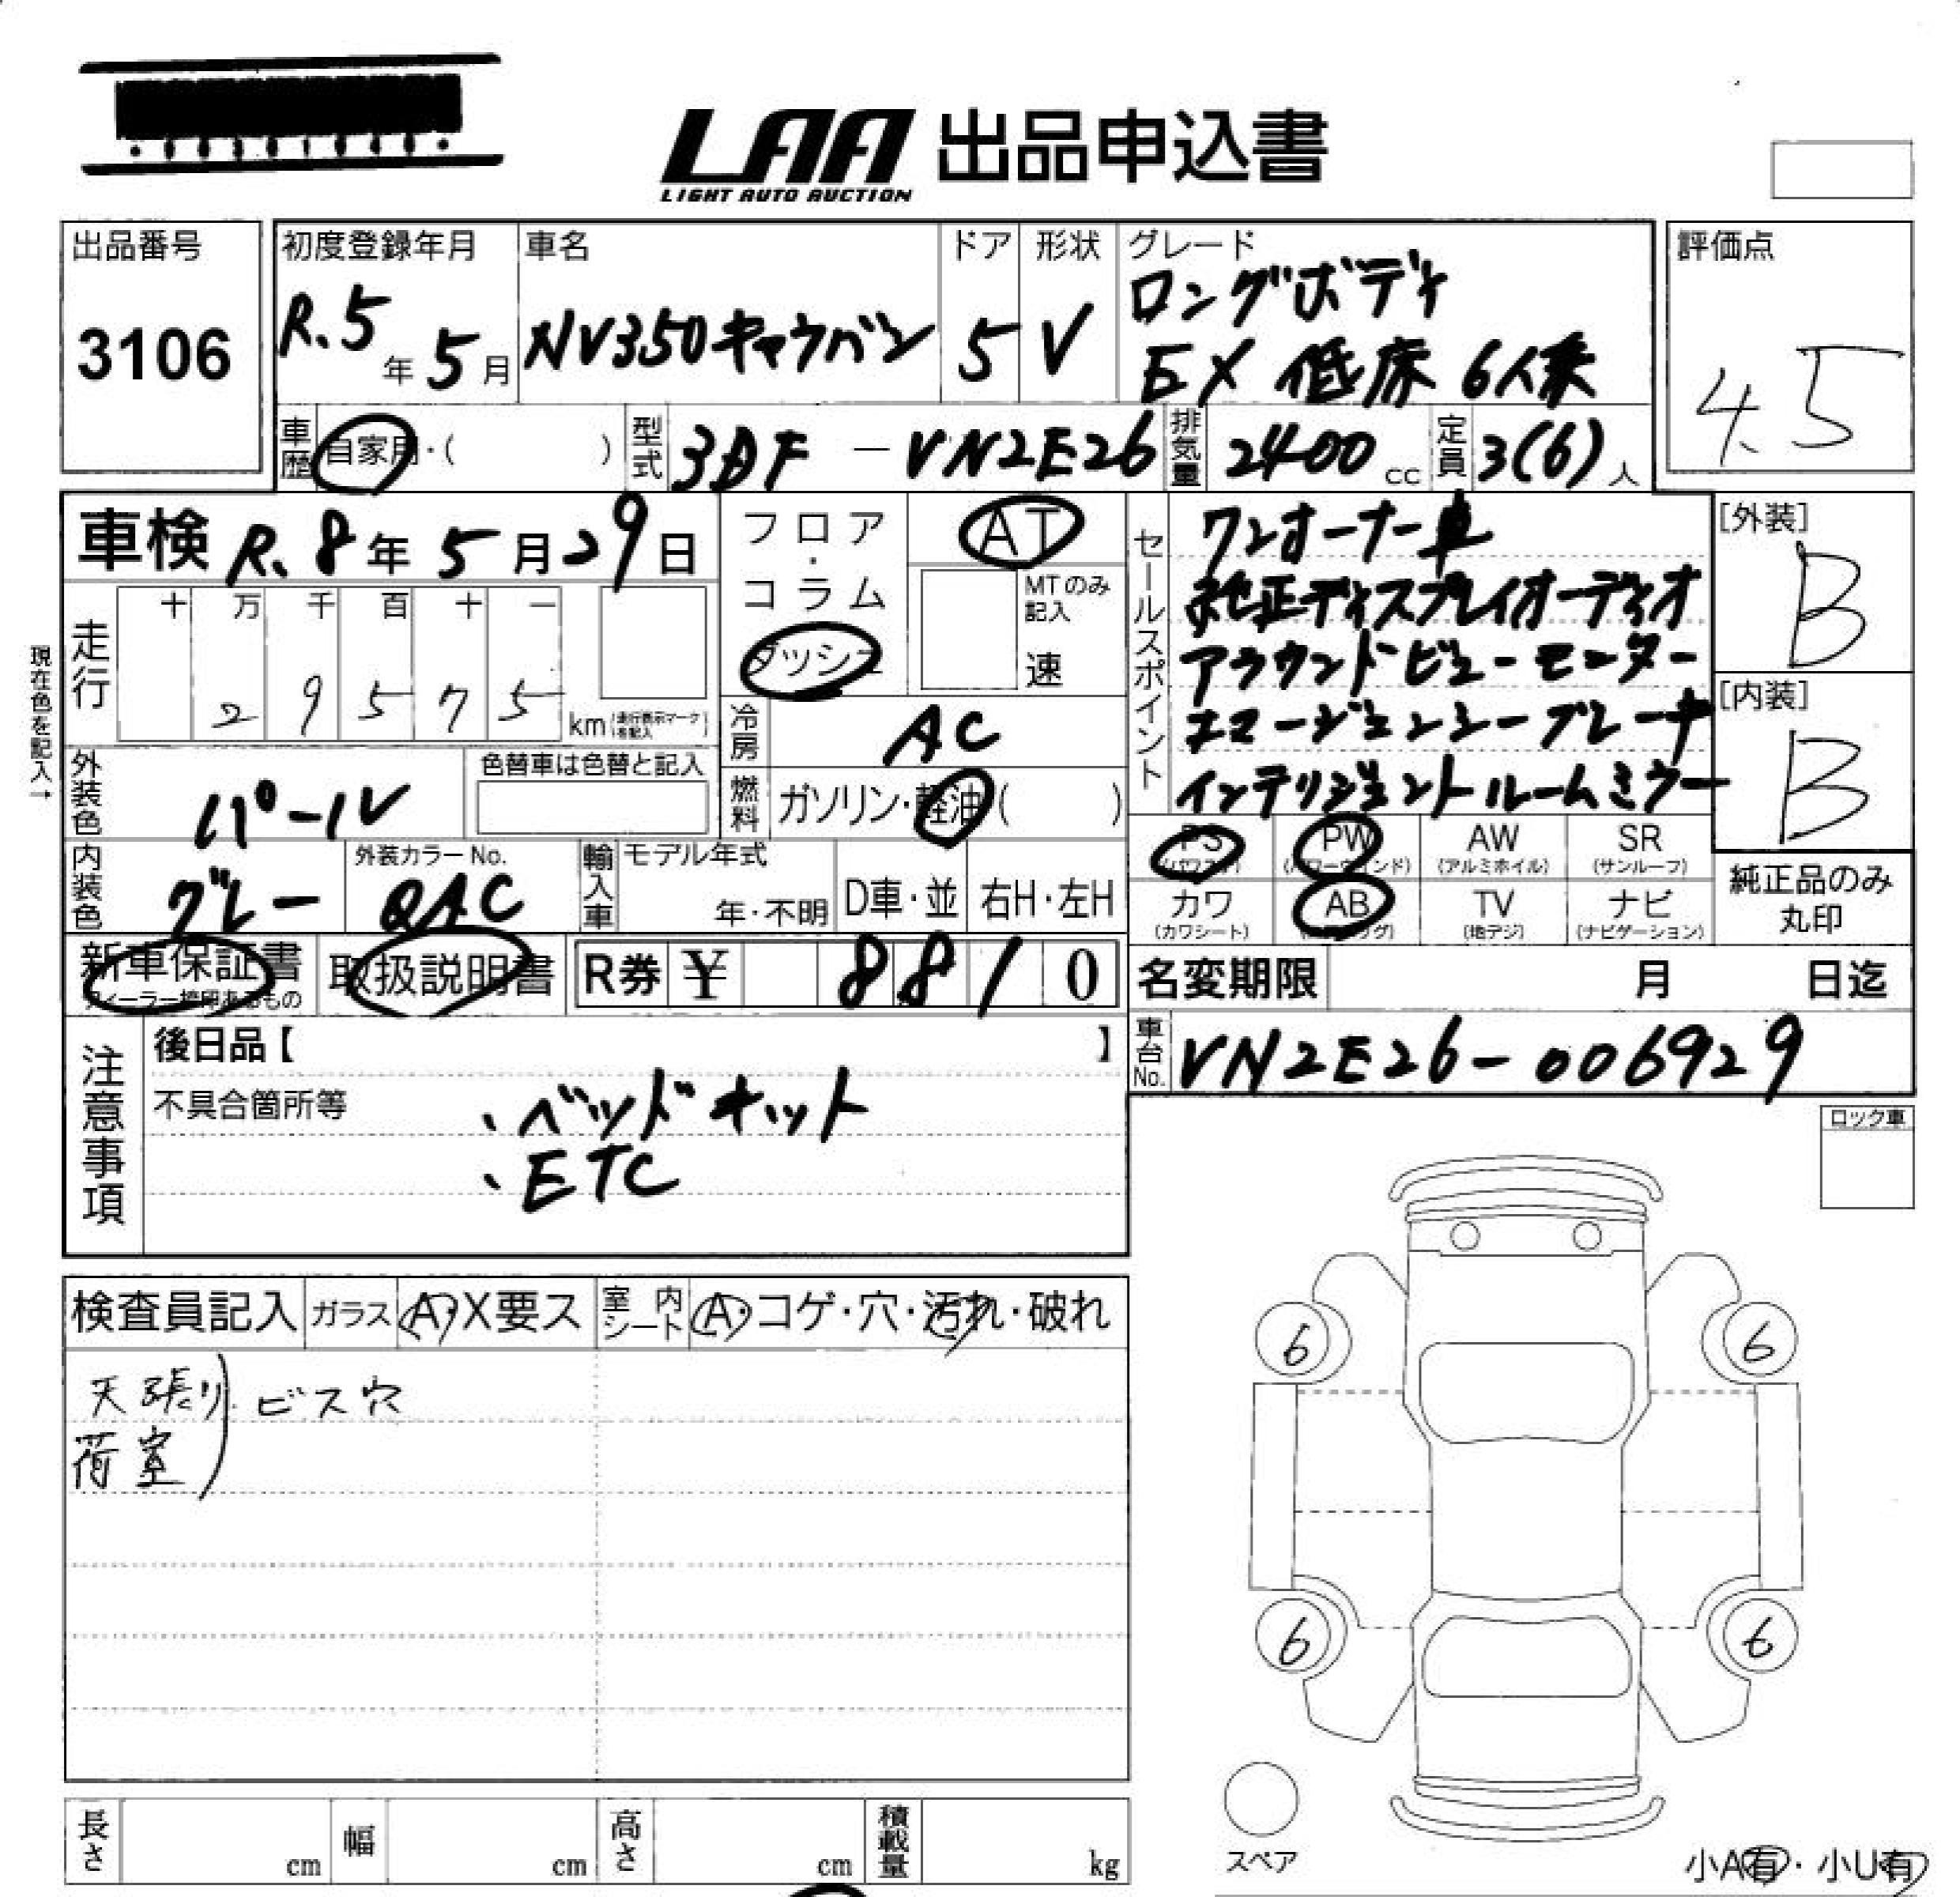 LAA 出品申込書
LIGHT AUTO AUCTION
出品番号
3106
初度登録年月
R.5年5月
車名
NV350キャラバン
ドア
5
形状
V
グレード
ロングボディ
EX 低床 6人乗
評価点
4.5
車歴
自家用・( )
型式
3DF-VN2E26
排気量
2400cc
定員
3(6)人
車検 R.8年5月29日
現在色を記入→
走行
十 万 千 百 十 一
2 9 5 7 5
km (走行表示マークを記入)
フロア・コラム
ダッシュ
AT
MTのみ記入
速
冷房
AC
燃料
ガソリン・軽油( )
セールスポイント
ワンオーナー車
純正ディスプレイオーディオ
アラウンドビューモニター
エマージェンシーブレーキ
インテリジェントルームミラー
[外装]
B
[内装]
B
外装色
パール
色替車は色替と記入
内装色
グレー
外装カラーNo.
QAC
輸入車
モデル年式
年・不明
D車・並
右H・左H
PS
(パワステ)
PW
(パワーウィンド)
AW
(アルミホイル)
SR
(サンルーフ)
カワ
(カワシート)
AB
(エアバッグ)
TV
(地デジ)
ナビ
(ナビゲーション)
純正品のみ
丸印
新車保証書
ディーラー捺印あるもの
取扱説明書
R券 ¥ 8 8 1 0
名変期限 月 日迄
車台No.
VN2E26-006929
注意事項
後日品【 】
不具合箇所等
、ベッドキット
、ETC
ロック車
検査員記入
ガラス
A・X要ス
室内シート
A・コゲ・穴・汚れ・破れ
天張り
荷室
ビス穴
6
6
6
6
スペア
小A有・小U有
長さ cm
幅 cm
高さ cm
積載量 kg